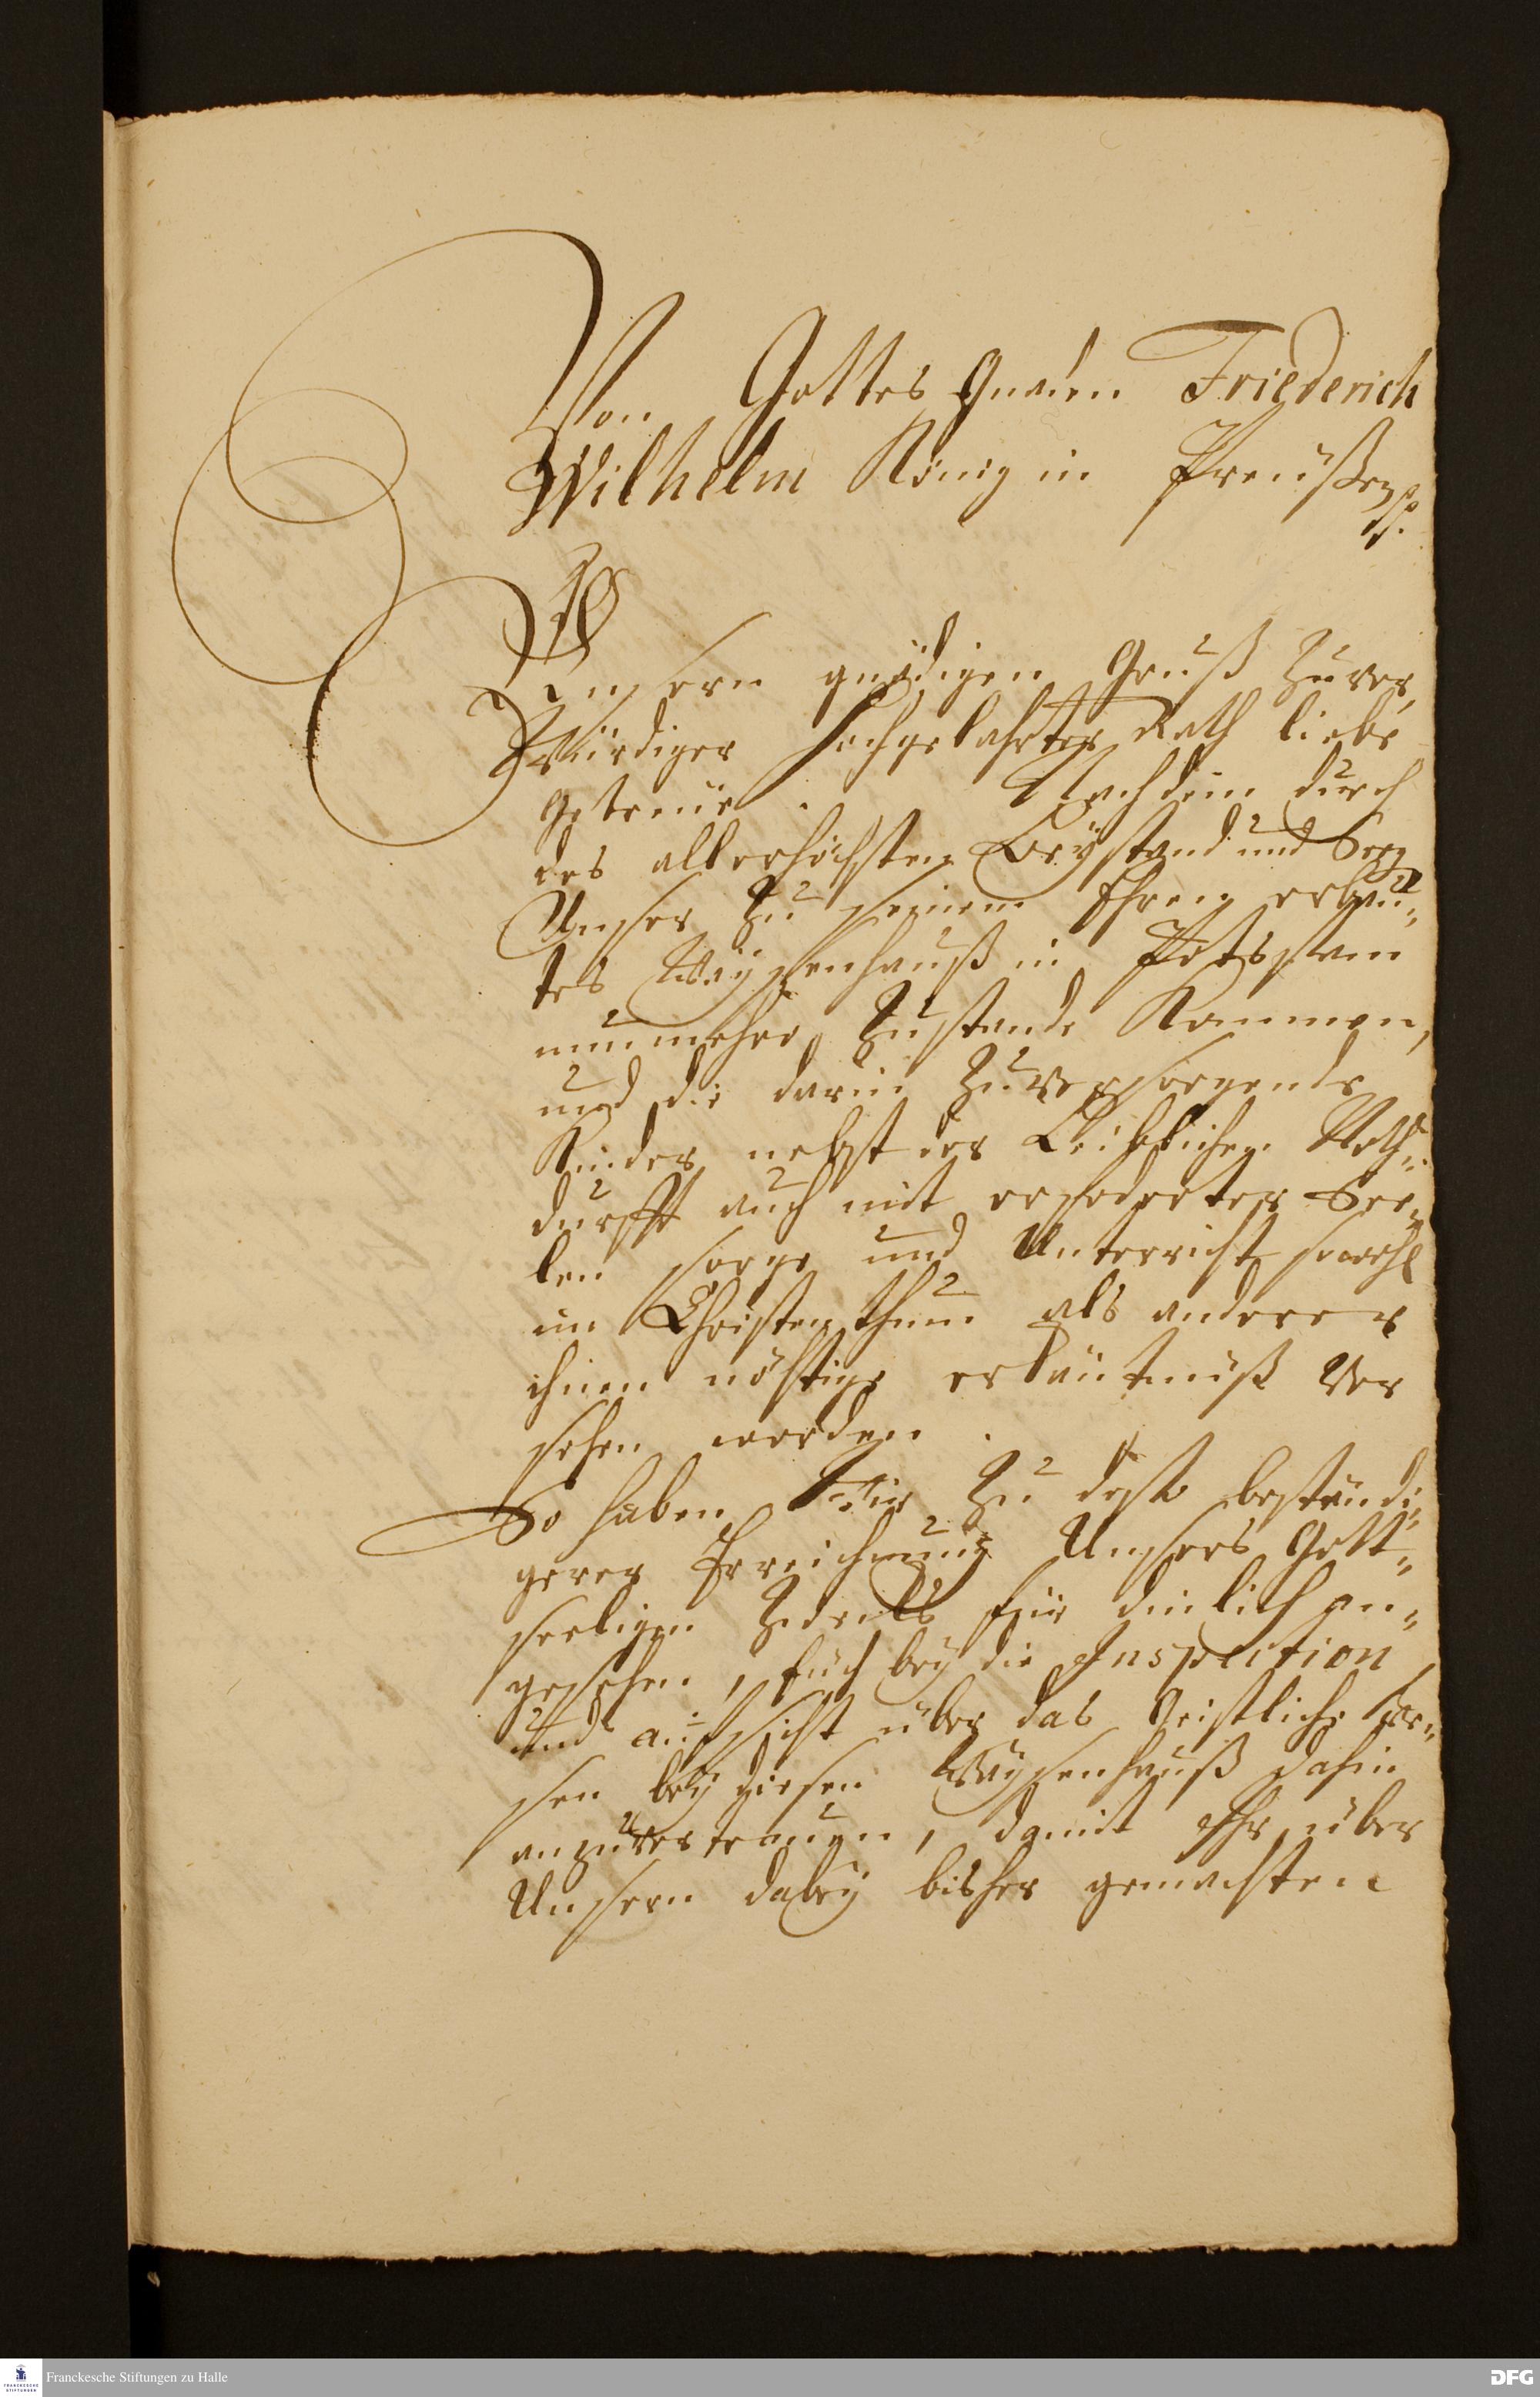 Von Gottes Gnaden Friederich
Wilhelm König in Preüßen p.
Unsern gnädigen Gruß zuvor,
Würdiger Hochgelahrter Rath liebe
Getreüe. Nachdem durch
des allerhöchsten Beÿstand und Seegen
Unser zu seinem Ehren erbau„
tes Waÿsenhauß in Potsdam
nunmehro zustande kommen,
und die darin zuversorgende
Kinder nebst der Leiblichen Noth„
durfft auch mit erfoderter See„
len sorge und Unterricht sowohl
im Christenthum als anderer
ihnen nöhtige erkäntnüß Ver
sehen werden.
So haben Wir zu desto beständi„
gerer Erreichung Unsers Gott„
seeligen Zwecks für dienlich an„
gesehen, Euch beÿ die Inspection
und aufsicht über das Geistliche We„
sen beÿ diesem Waÿsenhauß dahin
anzuvertrauen, damit Ihr über
Unsern dabeÿ bisher gemachten
Franckesche Stiftungen zu Halle
DFG